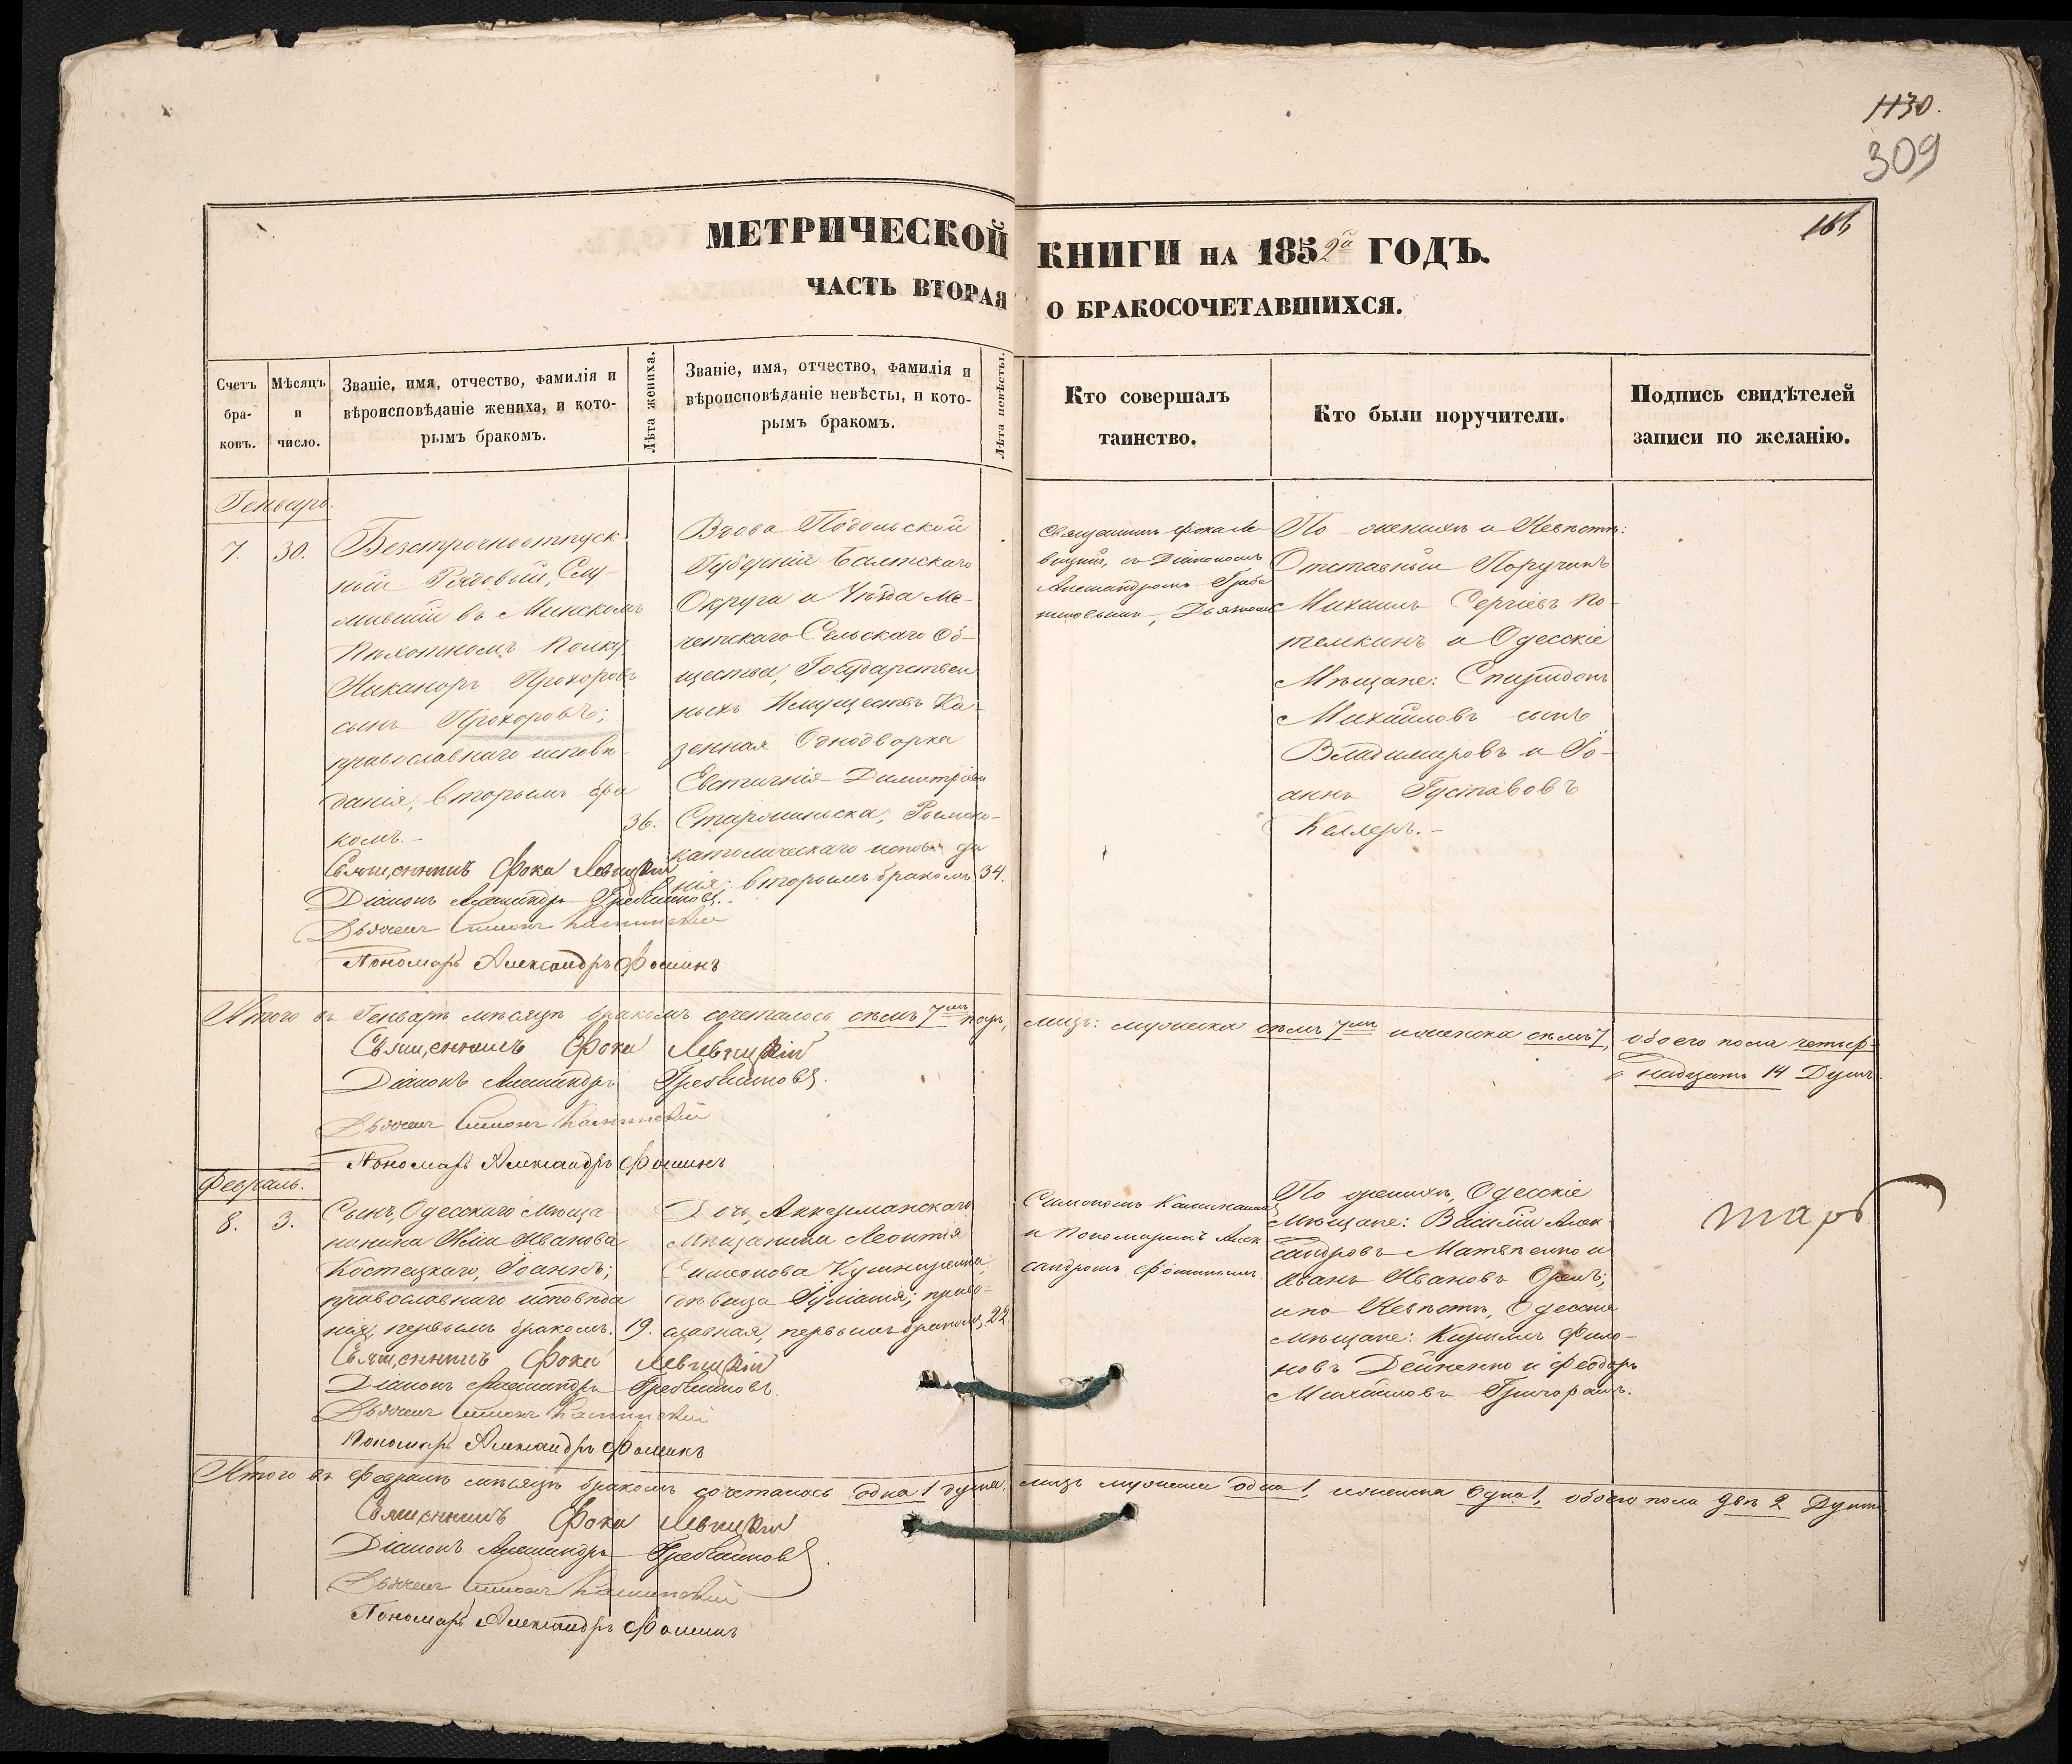 1130.
309
МЕТРИЧЕСКОЙ КНИГИ НА 1852й ГОДЪ.
ЧАСТЬ ВТОРАЯ О БРАКОСОЧЕТАВШИХСЯ.
Счетъ бра-ковъ.
Мѣсяцъ и число.
Званіе, имя, отчество, фамилія и
вѣроисповѣданіе жениха, и кото-
рымъ бракомъ.
Лѣта жениха.
Званіе, имя, отчество, фамилія и
вѣроисповѣданіе невѣсты, и кото-
рымъ бракомъ.
Лѣта невѣсты.
Кто совершалъ
таинство.
Кто были поручители.
Подпись свидѣтелей
записи по желанію.
Генварь.
7. 30.
Безсрочноотпуск
ный Рядовый, Слу-
жившій въ Минскомъ
Пѣхотномъ полку
Никаноръ Прохоровъ
сынъ Прохоровъ;
православнаго исповѣ-
данія, вторымъ бра
комъ.-
36.
Вдова Подольской
Губерніи Балтскаго
Округа и Уѣзда Ме-
четскаго Сельскаго Об-
щества, Государствен
ныхъ Имуществъ Ка-
зенная Однодворка
Евстигнія Димитріева
Римско-
католическаго исповѣда
нія; вторымъ бракомъ. 34.
Священникъ Фока Ле-
вицкій, съ Діакономъ
Александромъ Гребе
нниковымъ, Дьячкомъ
По женихѣ и Невѣстѣ:
Отставный Поручикъ
Михаилъ Сергіевъ По-
темкинъ и Одесскіе
Мѣщане: Спиридонъ
Михайловъ сынъ
Владимировъ и Іо-
аннъ Густавовъ
Келлеръ.-
Священникъ Фока Левицкій
Діаконъ Александръ Гребенниковъ.
Дьячекъ Симонъ
Пономарь Александръ Фоминъ
Итого въ Генварѣ мѣсяцѣ бракомъ сочеталось семь 7мь паръ, лицъ: мужеска семь 7мь женска семь 7, обоего пола четыр-
надцать 14 Душъ.
Священникъ Фока Левицкій
Діаконъ Александръ Гребенниковъ.
Дьячекъ Симонъ
Пономарь Александръ Фоминъ
Февраль.
8. 3.
Сынъ, Одесскаго Мѣща
нина Ильи Иванова
Костецкаго, Іоаннъ;
православнаго исповѣда
нія, первымъ бракомъ. 19.
Дочь, Аккерманскаго
Мѣщанина Леонтія
Симеонова
дѣвица Іуліанія; право-
славная, первымъ бракомъ. 22
Симономъ
и Пономаремъ Алек
сандромъ Фоминымъ.
По женихѣ, Одесскіе
Мѣщане: Василій Алек-
сандровъ Матвѣенко и
Иванъ Ивановъ Орелъ;
и по Невѣстѣ, Одесскіе
мѣщане: Кириллъ Фило-
новъ Дейненко и Феодоръ
Михайловъ
Священникъ Фока Левицкій
Діаконъ Александръ Гребенниковъ.
Дьячекъ Симонъ
Пономарь Александръ Фоминъ
Итого въ Февралѣ мѣсяцѣ бракомъ сочеталось одна 1 душа, лицъ мужеска одна 1, женска одна 1, обоего пола двѣ 2 Души
Священникъ Фока Левицкій
Діаконъ Александръ Гребенниковъ.
Дьячекъ Симонъ
Пономарь Александръ Фоминъ